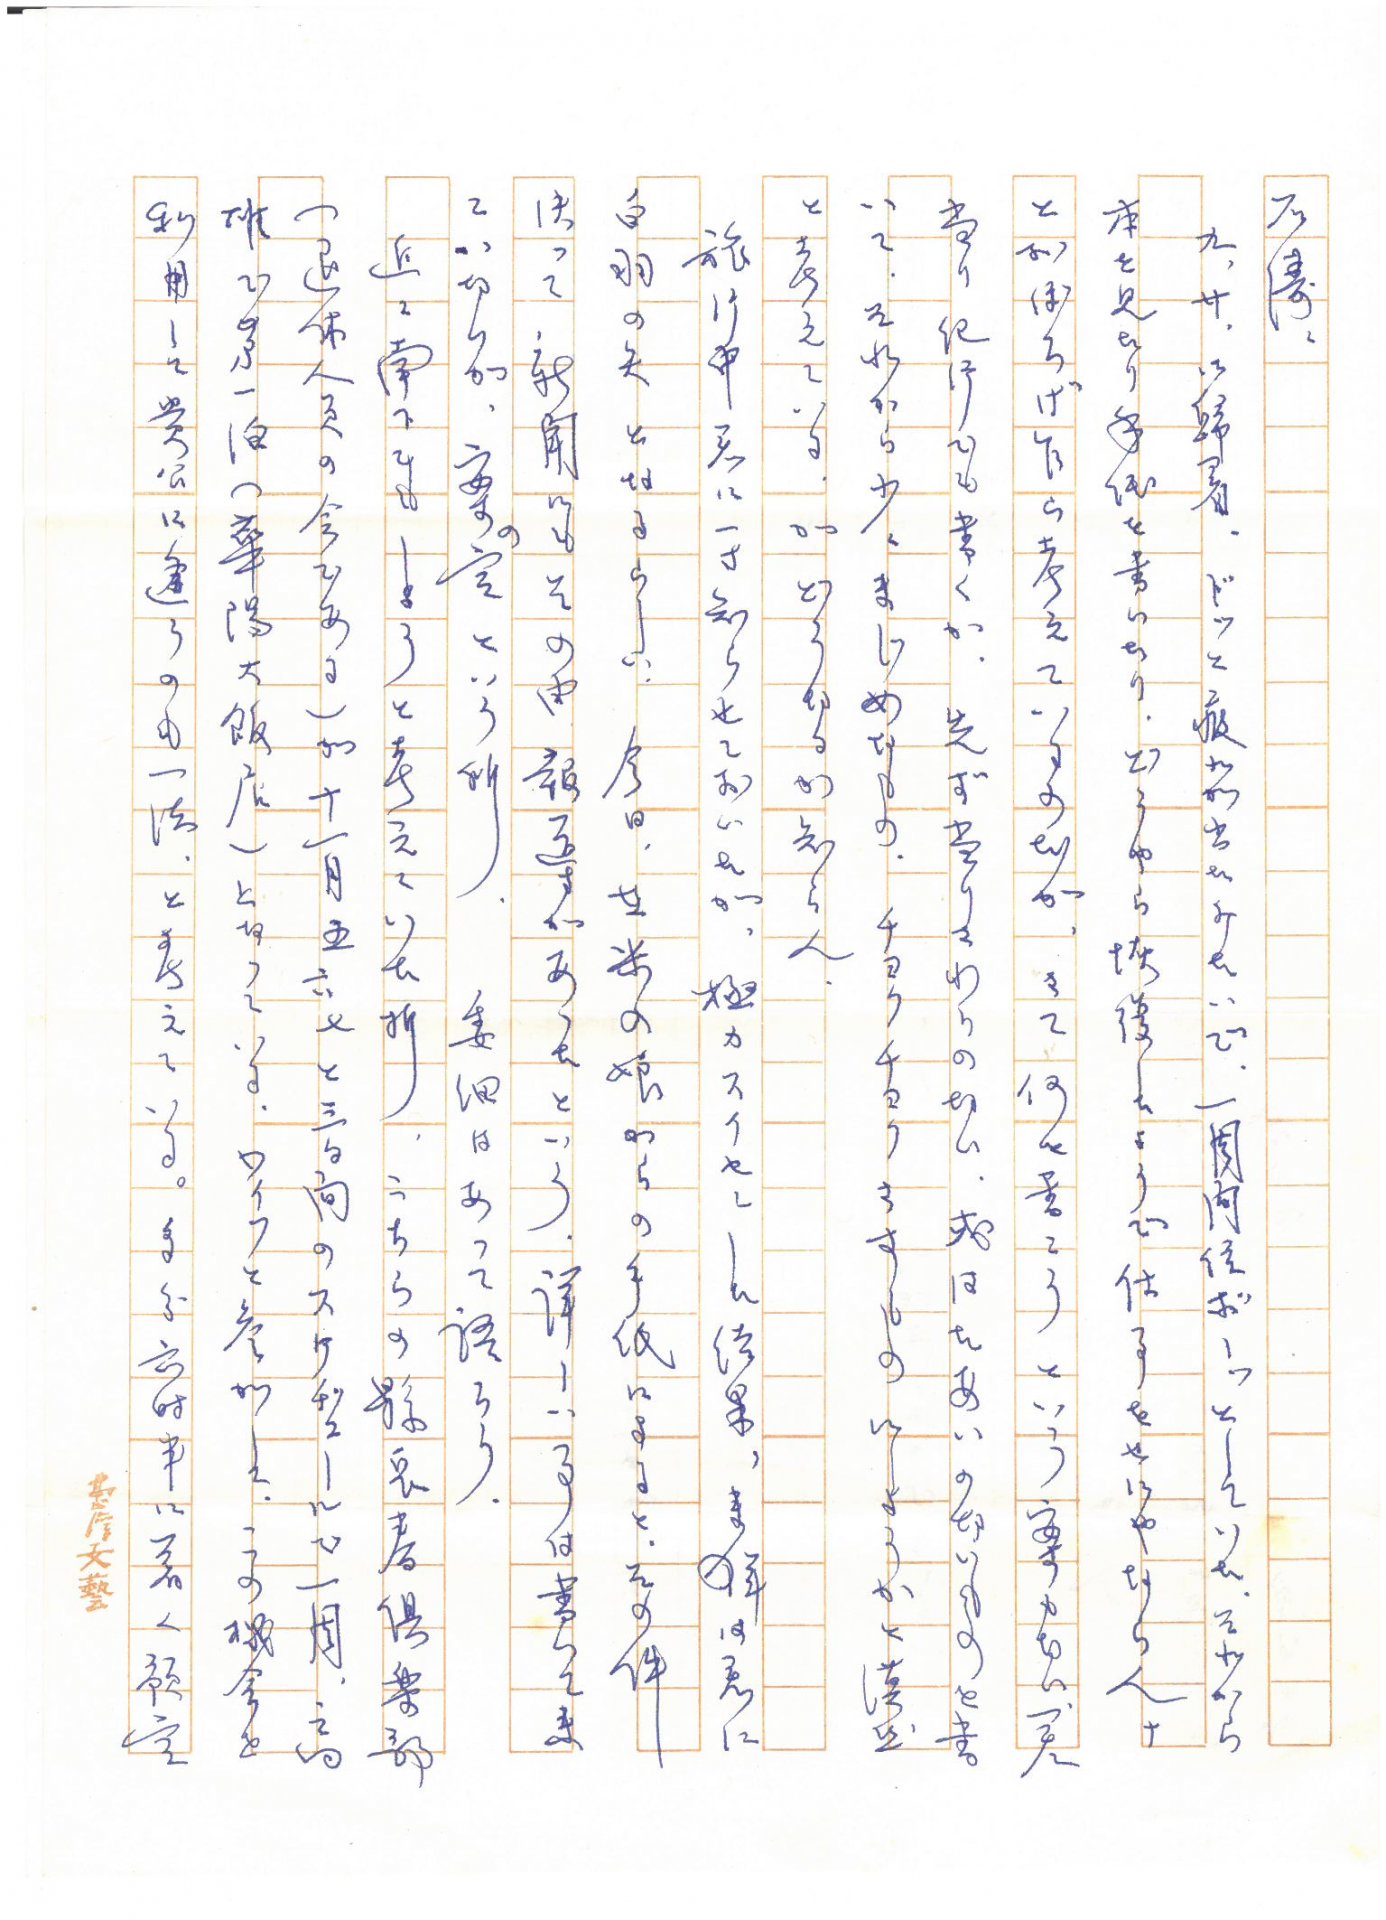 石濤、
九、廿、に歸着、ドッと疲れが出たみたいで、一周間位ボーッとしていた。それから
本を見たり手紙を書いたり、どうやら恢復したようで仕事をせにやならん、
とおぼろげ乍ら考えているのだが、さて何を書こうという案もない。差
当り紀行でも書くか、先ず当りさわりのない、或はたあいのないものを書
いて、それから少々まじめなもの、チヨクチヨクきすもの にしようかと漠然
と考えている。がどうなるか知らん。
旅行中君に一寸知らせておいたが、極力スイセンした結果、その様は君に
白羽の矢となるらしい。今日、在米の娘からの手紙によると、その件
決って新聞にもその由報道があったという。詳しい事は書いてま
ていないが、案の定という所。 委細はあって語ろう。
近々南下しようと考えていた折、こちらの縣長春倶楽部
(退休人員の会である)が十一月五六七と三日間のスケヂュールで一周、高
雄で泊一泊(華陽大飯店)となっている。ワイフと参加した。この機会を
利用して貴公に逢うのも一法、と考えている。多分六時半に着く預定
臺湾文藝